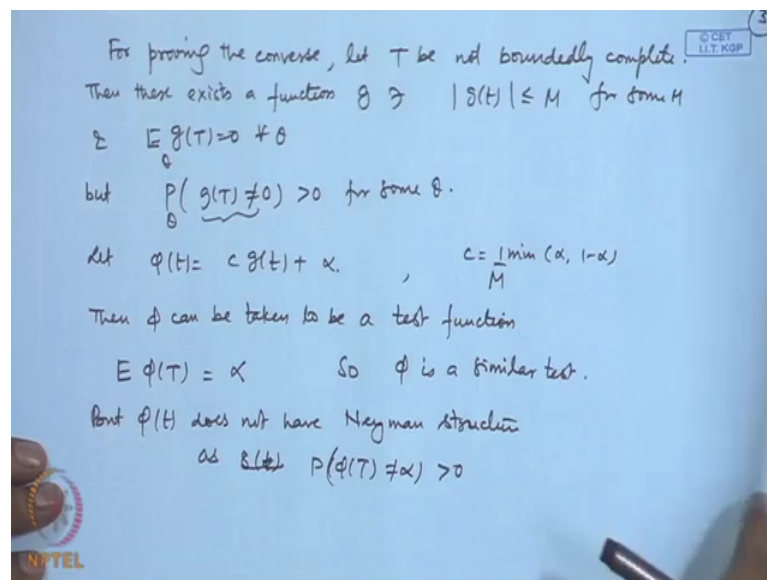 3
© CET
I.I.T. KGP
For proving the converse, let T be not boundedly complete.
Then there exists a function g ∋ |g(t)| ≤ M for some M
& E_θ g(T) = 0 ∀ θ
but P_θ( g(T) ≠ 0) > 0 for some θ.
Let φ(t) = c g(t) + α. , c = 1/M min (α, 1-α)
Then φ can be taken to be a test function
E φ(T) = α So φ is a similar test.
But φ(t) does not have Neyman structure
as P(φ(T) ≠ α) > 0
NPTEL